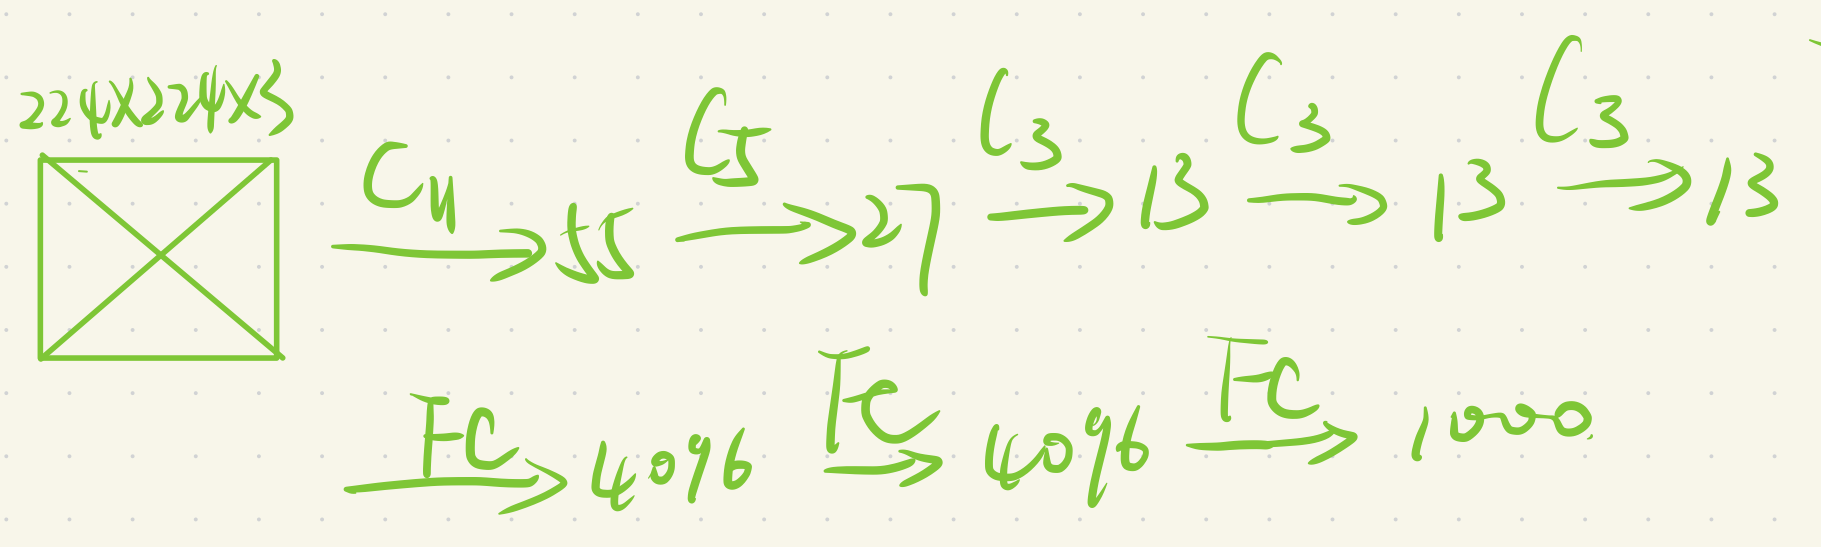 224X224X3
C11 → 55 C5 → 27 C3 → 13 C3 → 13 C3 → 13
FC → 4096 FC → 4096 FC → 1000